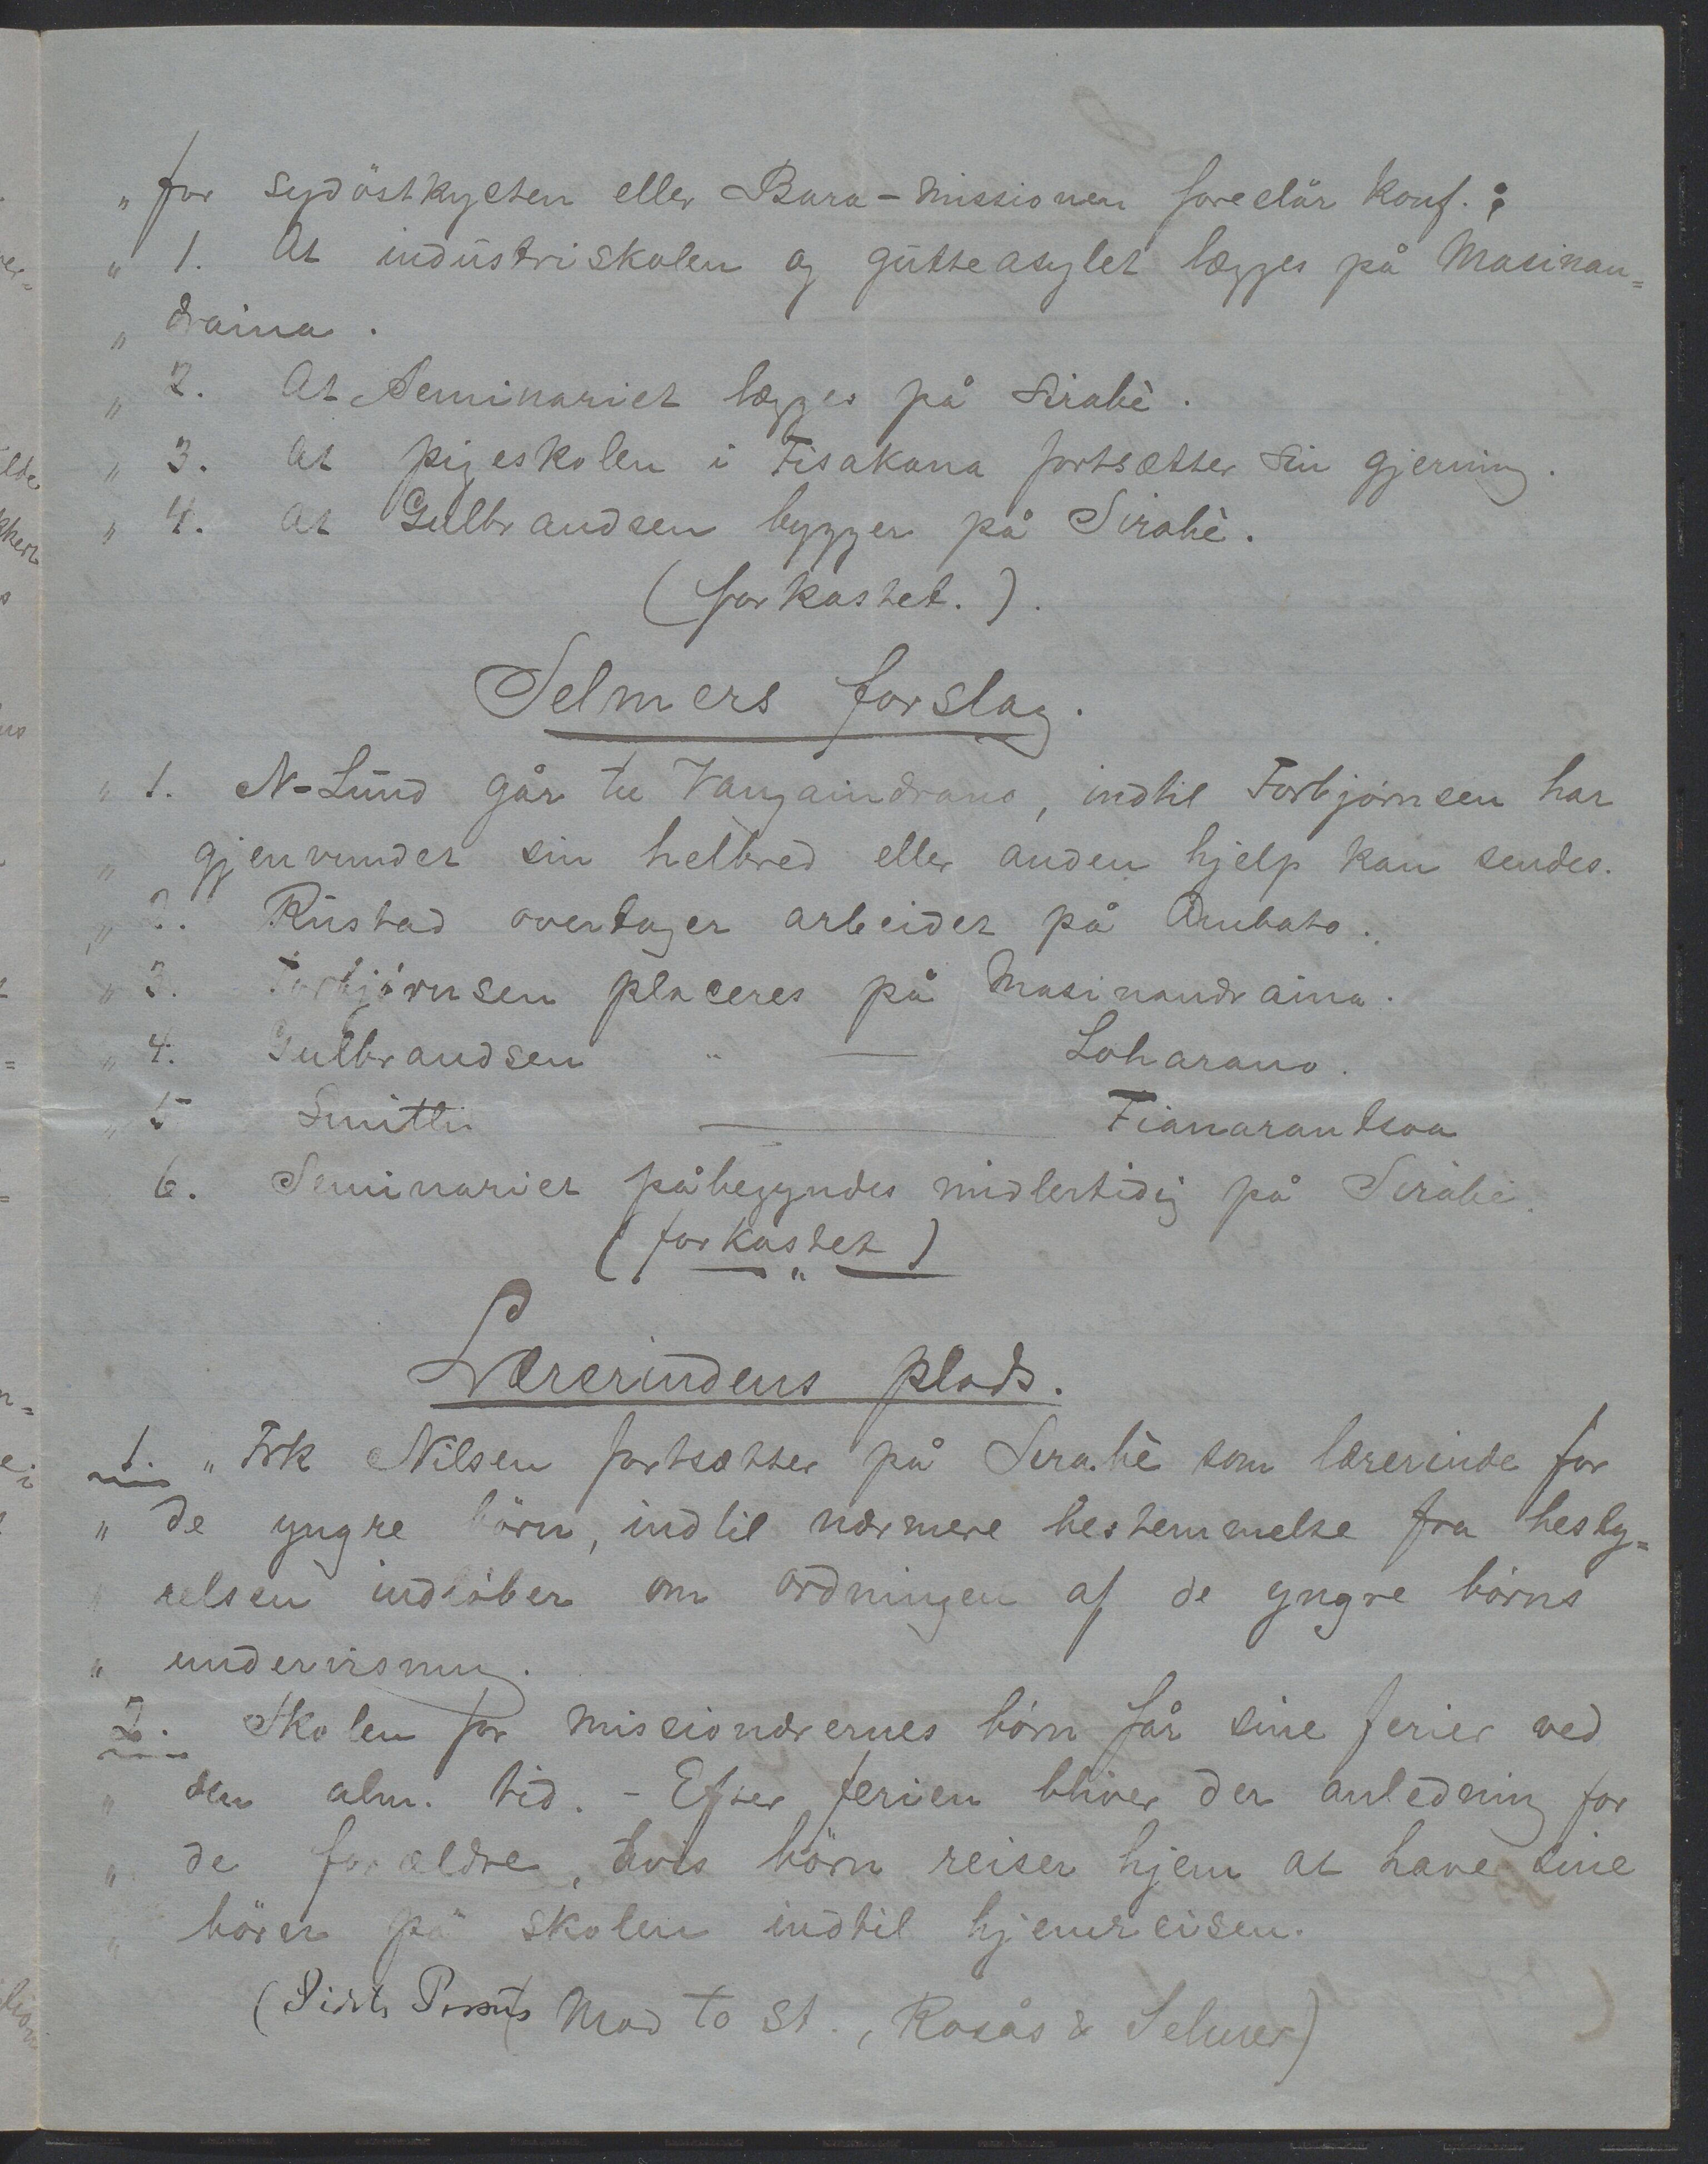 „ for sydöstkysten eller Bara-missionen foreslår konf.:
„ 1. At industriskolen og gutteasylet lægges på Masinan=
„ draina.
„ 2. At Seminariet lægges på Sirabè.
„ 3. At pigeskolen i Fisakana fortsætter sin gjerning.
„ 4. At Gulbrandsen bygger på Sirabè.
(forkastet.).
Selmers forslag.
„ 1. N-Lund går til Vangaindrano, indtil Torbjörnsen har
„ gjenvundet sin helbred eller anden hjelp kan sendes.
„ 2. Rustad overtager arbeidet på Ambato.
„ 3. Torbjörnsen placeres på Masinandraina.
„ 4. Gulbrandsen „ — Loharano.
„ 5 Smith — Fianarantsoa
6. Seminariet påbegyndes midlertidig på Sirabè.
(forkastet)
„
Lærerindens plads.
1. „ Frk Nilsen fortsætter på Sirabè som lærerinde for
„ de yngre börn, indtil nærmere bestemmelse fra besty=
„ relsen indlöber om ordningen af de yngre börns
„ undervisning.
2. Skolen for missionærernes börn får sine ferier ved
„ den alm. tid. - Efter ferien bliver der anledning for
„ de forældre, hvis börn reiser hjem at have sine
„ börn på skolen indtil hjemreisen.
(Sidste Mod to St., Rosås & Selmer)